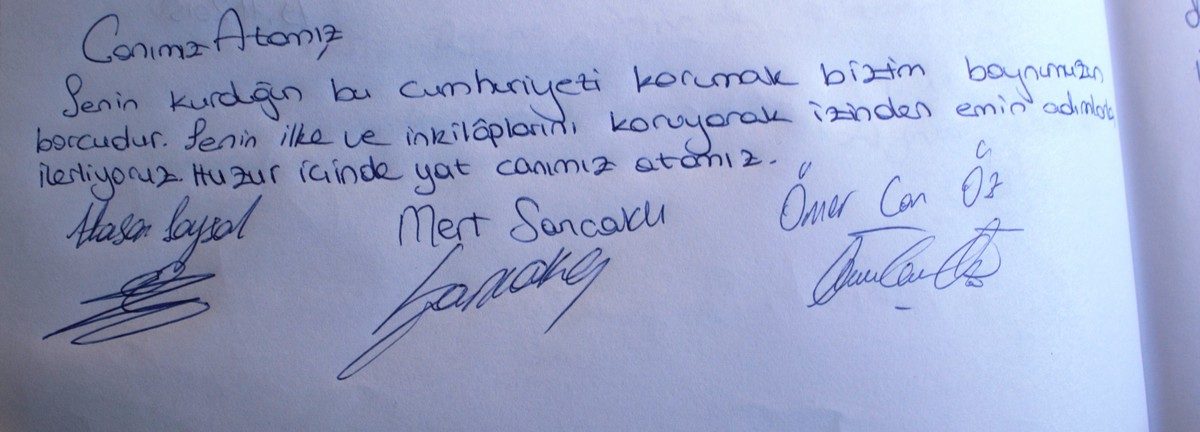 Canımız Atamız
Senin kurdğun bu cumhuriyeti korumak bizim boynumuzun
borcudur. Senin ilke ve inkilâplarını koruyarak izinden emin adımlarla
ilerliyoruz. Huzur içinde yat canımız atamız.
Hasan Soysal Mert Sancaklı Ömer Can Öz